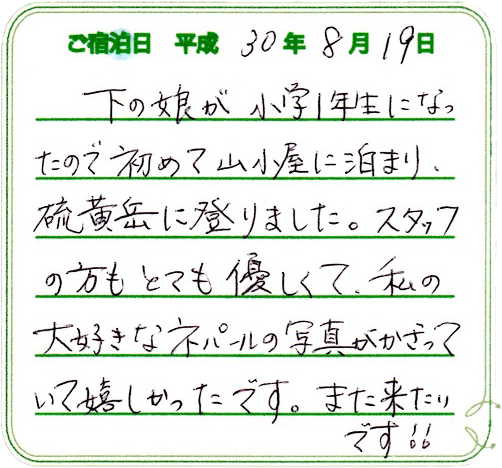 ご宿泊日 平成 30年 8月 19日
下の娘が 小学1年生になっ
たので初めて山小屋に泊まり、
硫黄岳に登りました。スタッフ
の方もとても優しくて、私の
大好きなネパールの写真がかざって
いて嬉しかったです。また来たい
です!!